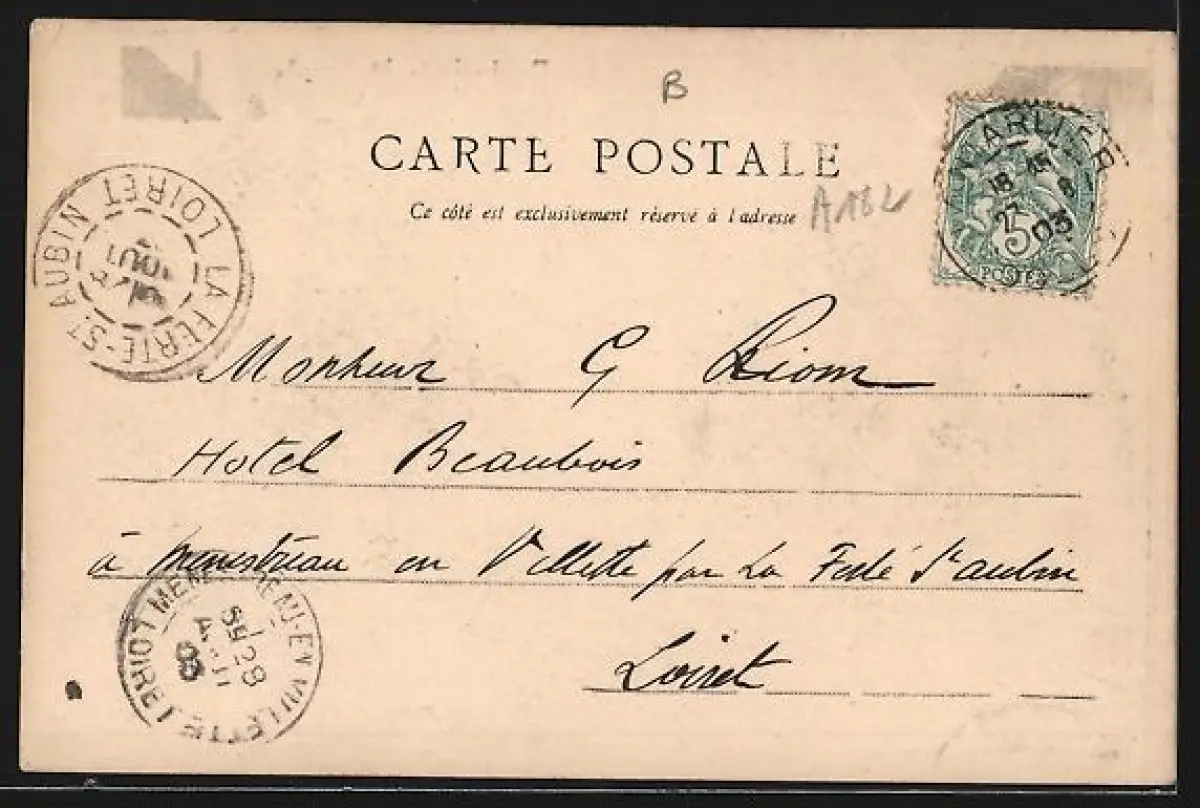 B
CARTE POSTALE
Ce côté est exclusivement réservé à l'adresse
A182
ARLIE
18
27 8
03
5
POSTES
LA FERTE-ST AUBIN LOIRET
AOUT
Monsieur G Riom
Hotel Beaubois
à Menestreau en Villette par La Ferté St aubin
Loiret
MENE REAU-EN-VILLETTE LOIRET
28
AOU